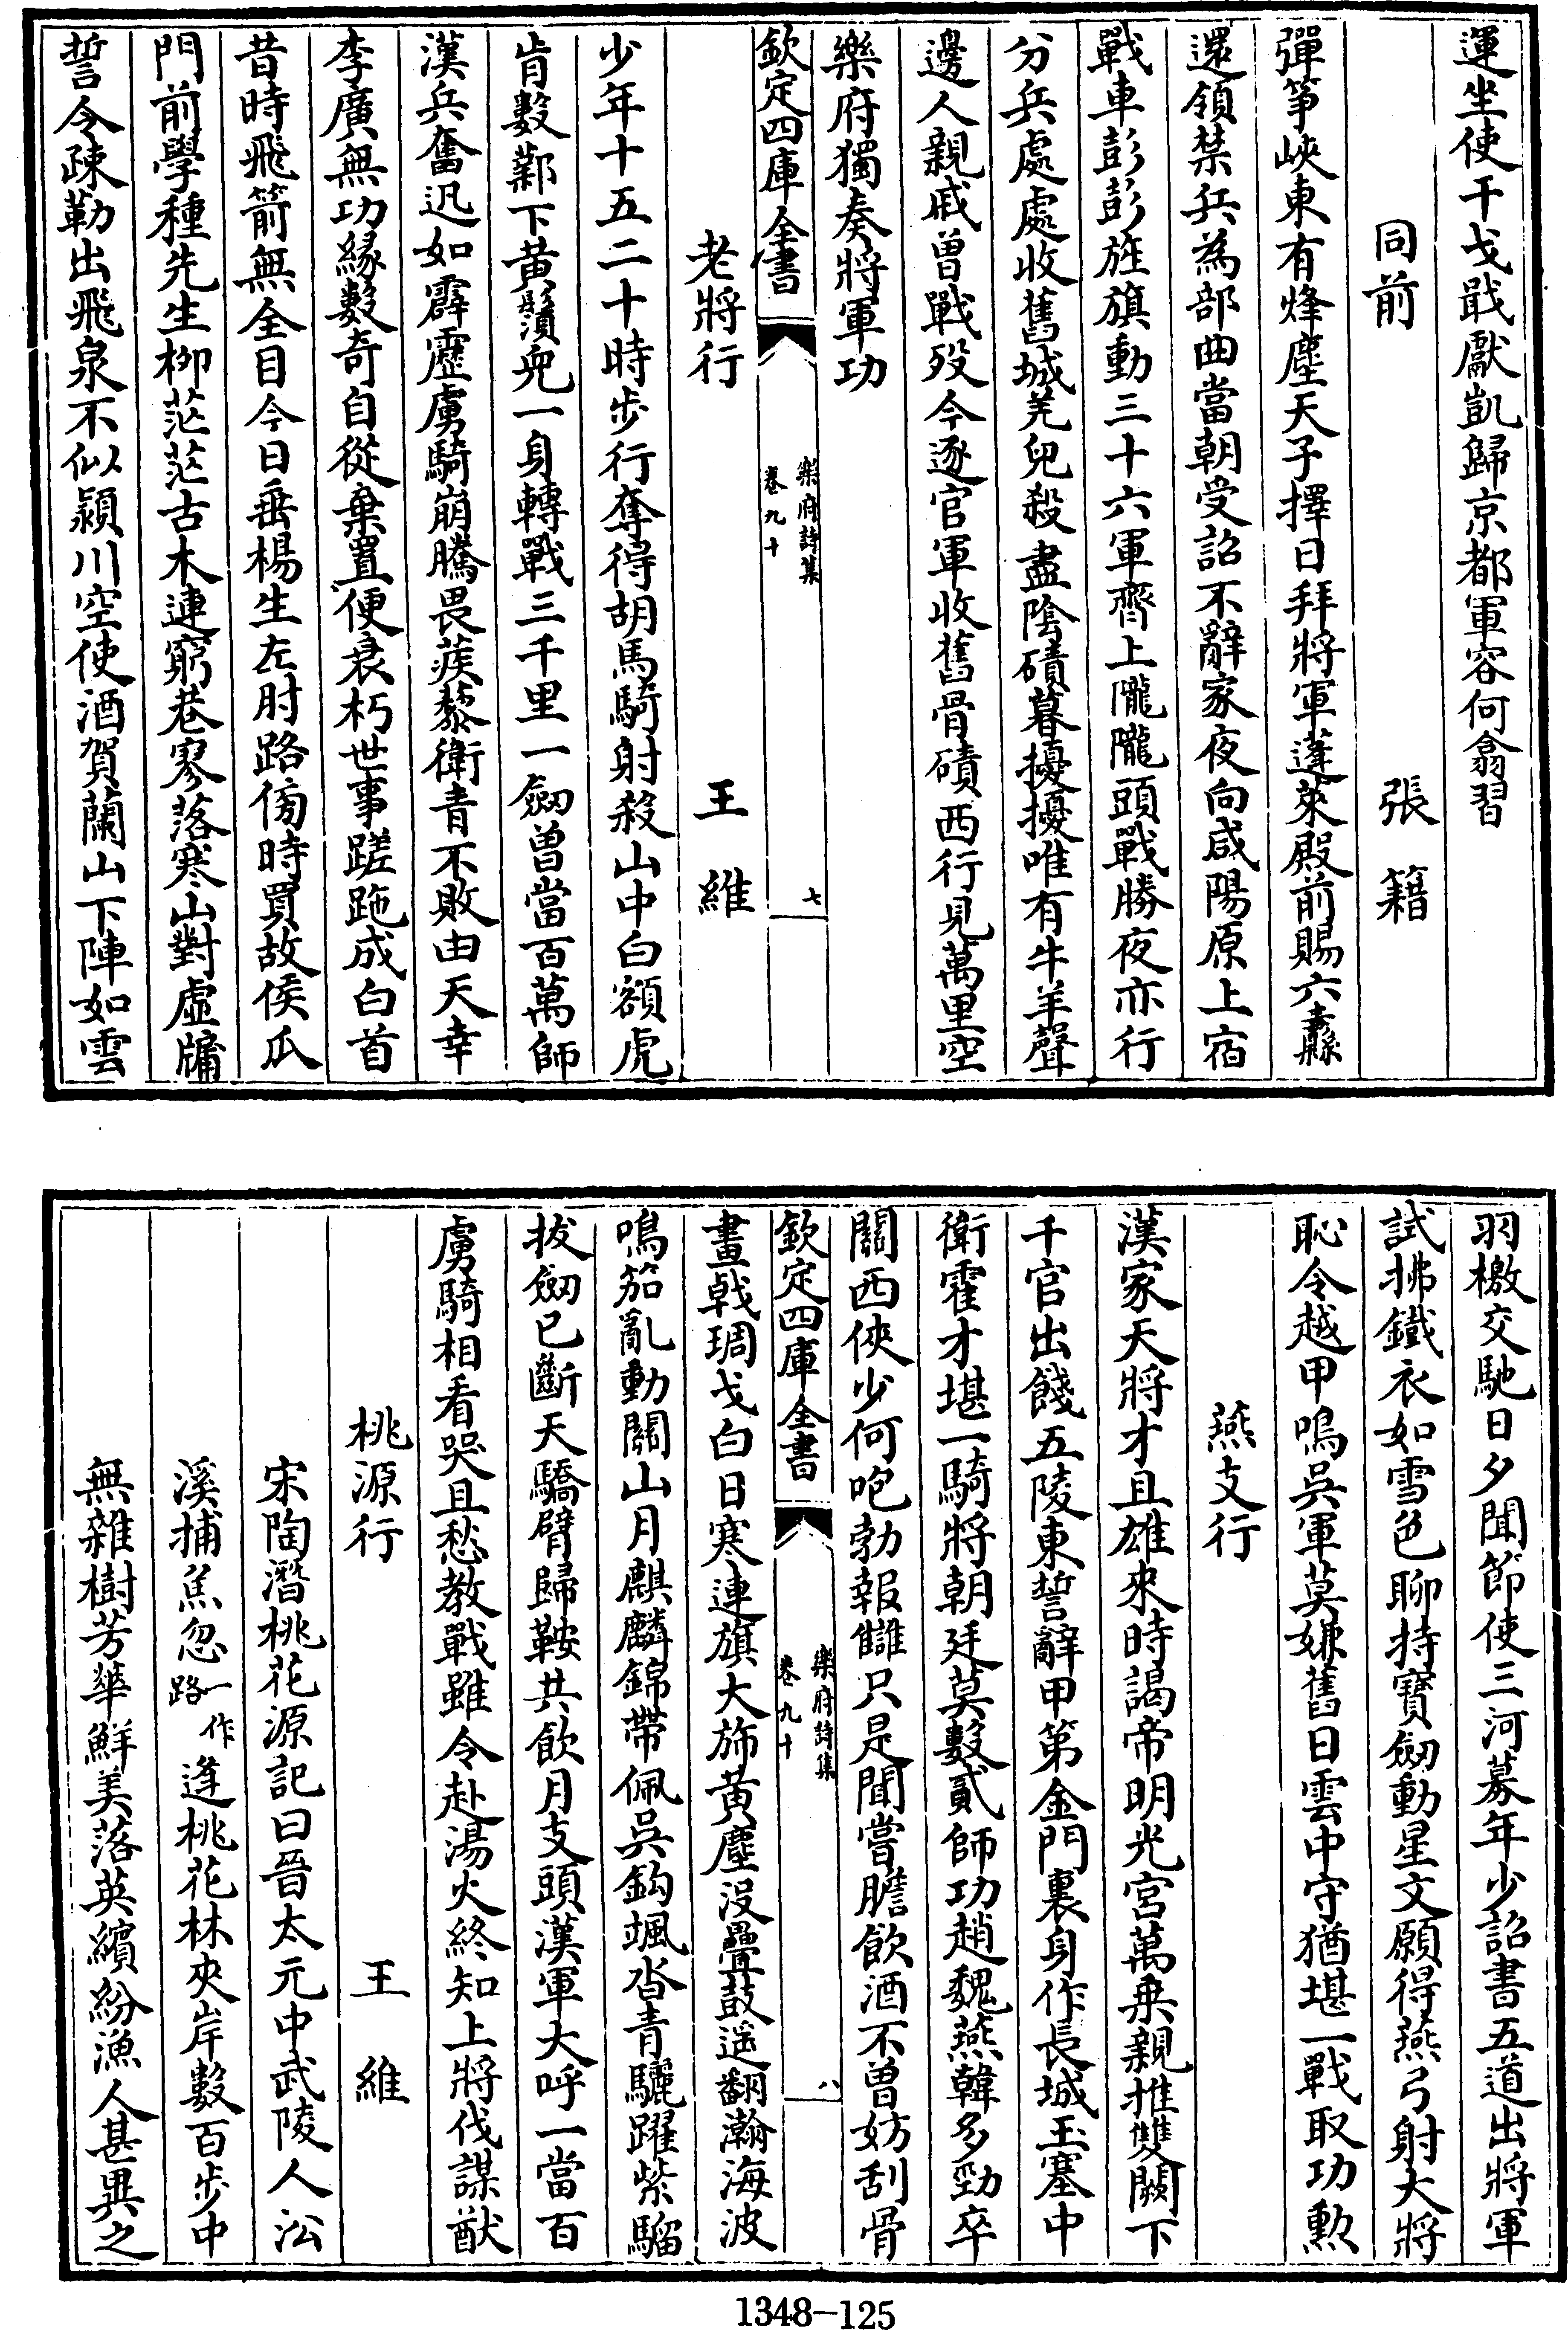 運坐使干戈戢獻凱歸京都軍容何翕習
同前　張籍
彈箏峽東有烽塵天子擇日拜將軍蓬萊殿前賜六纛
還領禁兵為部曲當朝受詔不辭家夜向咸陽原上宿
戰車彭彭旌旗動三十六軍齊上隴隴頭戰勝夜亦行
分兵處處收舊城羌兒殺盡陰磧暮擾擾唯有牛羊聲
邊人親戚曽戰歿今逐官軍收舊骨磧西行見萬里空
樂府獨奏將軍功
欽定四庫全書
樂府詩集
卷九十
七
老將行　王維
少年十五二十時步行奪得胡馬騎射殺山中白額虎
肯數鄴下黄鬚兒一身轉戰三千里一劒曽當百萬師
漢兵奮迅如霹靂虜騎崩騰畏蒺藜衛青不敗由天幸
李廣無功緣數奇自從棄置便衰朽世事蹉跎成白首
昔時飛箭無全目今日垂楊生左肘路傍時買故侯瓜
門前學種先生栁茫茫古木連窮巷寥落寒山對虛牖
誓令疎勒出飛泉不似潁川空使酒賀蘭山下陣如雲
羽檄交馳日夕聞節使三河募年少詔書五道出將軍
試拂鐵衣如雪色聊持寶劒動星文願得燕弓射大將
恥令越甲鳴吳軍莫嫌舊日雲中守猶堪一戰取功勲
燕支行
漢家天將才且雄來時謁帝明光宮萬乗親推雙闕下
千官出餞五陵東誓辭甲第金門裏身作長城玉塞中
衛霍才堪一騎將朝廷莫數貳師功趙魏燕韓多勁卒
關西俠少何咆勃報讎只是聞嘗膽飲酒不曽妨刮骨
欽定四庫全書
樂府詩集
卷九十
八
畫戟琱戈白日寒連旗大斾黄塵沒疊鼓遥翻瀚海波
鳴笳亂動關山月麒麟錦帶佩吳鈎颯沓青驪躍紫騮
拔劒已斷天驕臂歸鞍共飲月支頭漢軍大呼一當百
虜騎相看哭且愁教戰雖令赴湯火終知上將伐謀猷
桃源行　王維
宋陶潛桃花源記曰晉太元中武陵人㳂
溪捕魚忽一作路逢桃花林夾岸數百步中
無雜樹芳華鮮美落英繽紛漁人甚異之
1348-125